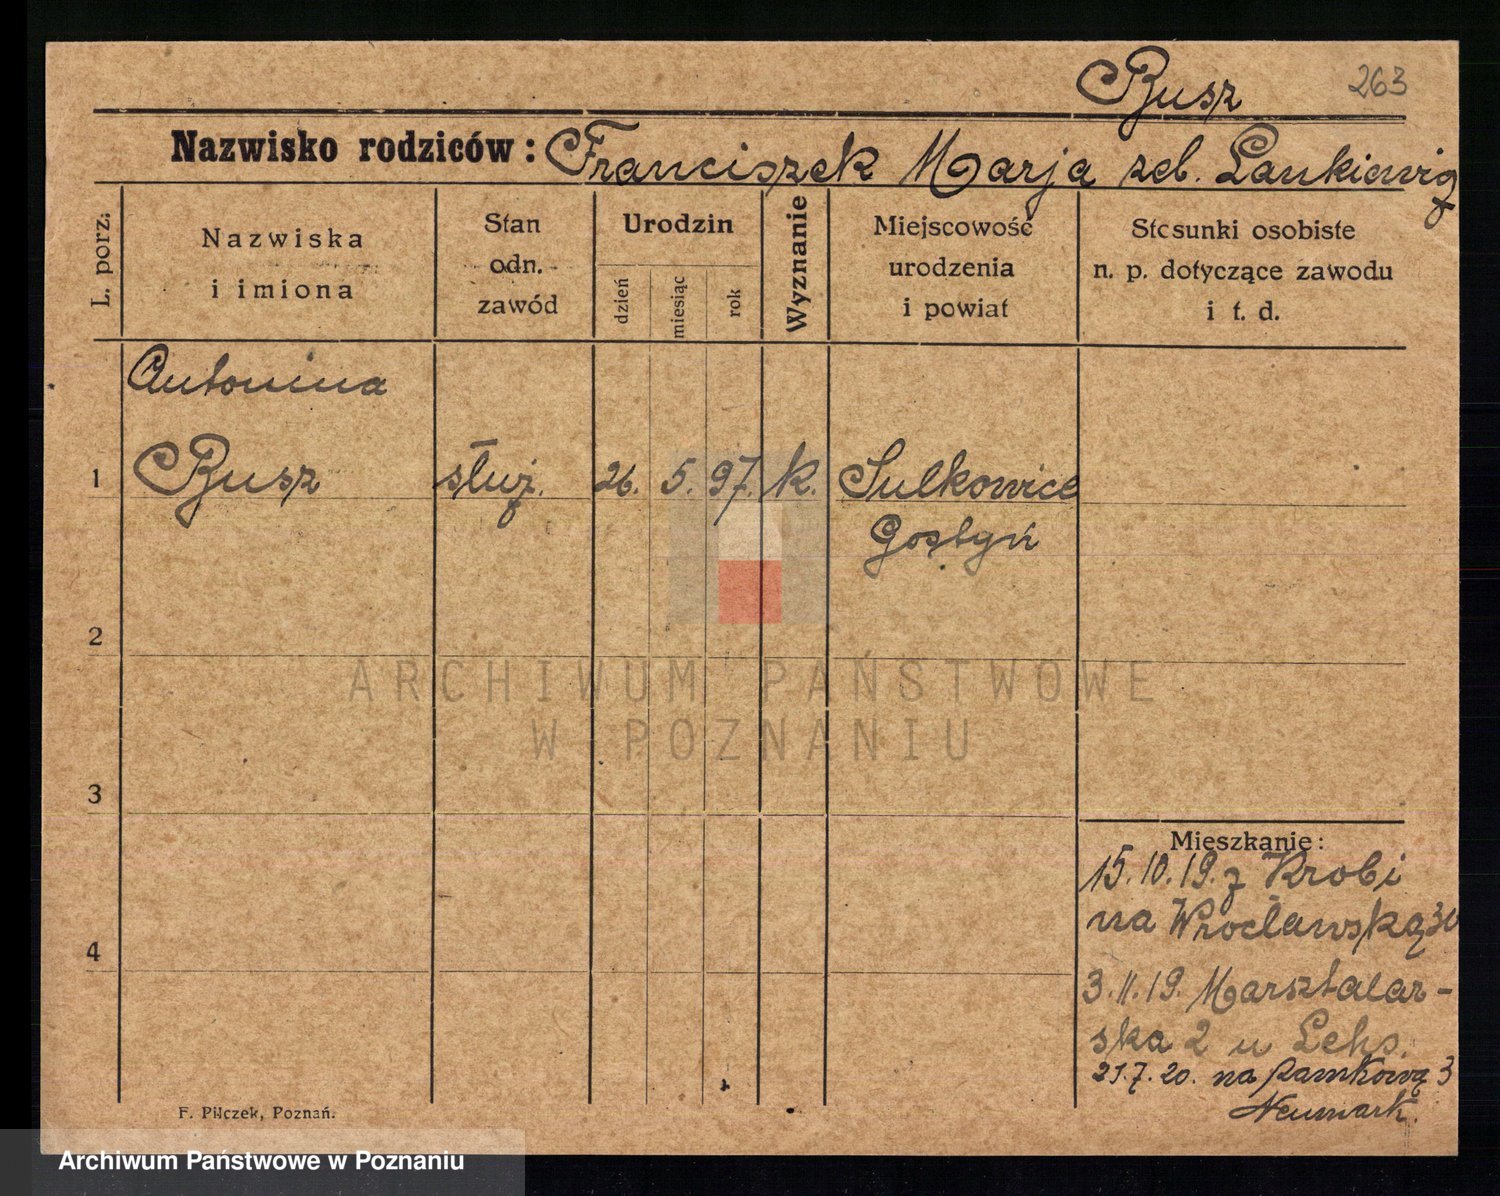 Busz 263
Nazwisko rodziców: Franciszek Marja zeb. Lankiewicz
L. porz.
Nazwiska
i imiona
Stan
odn.
zawód
Urodzin
dzień
miesiąc
rok
Wyznanie
Miejscowość
urodzenia
i powiat
Stosunki osobiste
n. p. dotyczące zawodu
i t. d.
Antonina
1 Busz służ. 26. 5. 97. k. Sulkowice
Gostyń
2
3
4
Mieszkanie:
15.10.19. z Krobi
na Wrocławską 30
3.11.19. Marsztalar-
ska 2 u Lehs.
21.7.20. na Zamkową 3
Neumark.
F. Pilczek, Poznań.
ARCHIWUM PAŃSTWOWE
W POZNANIU
Archiwum Państwowe w Poznaniu